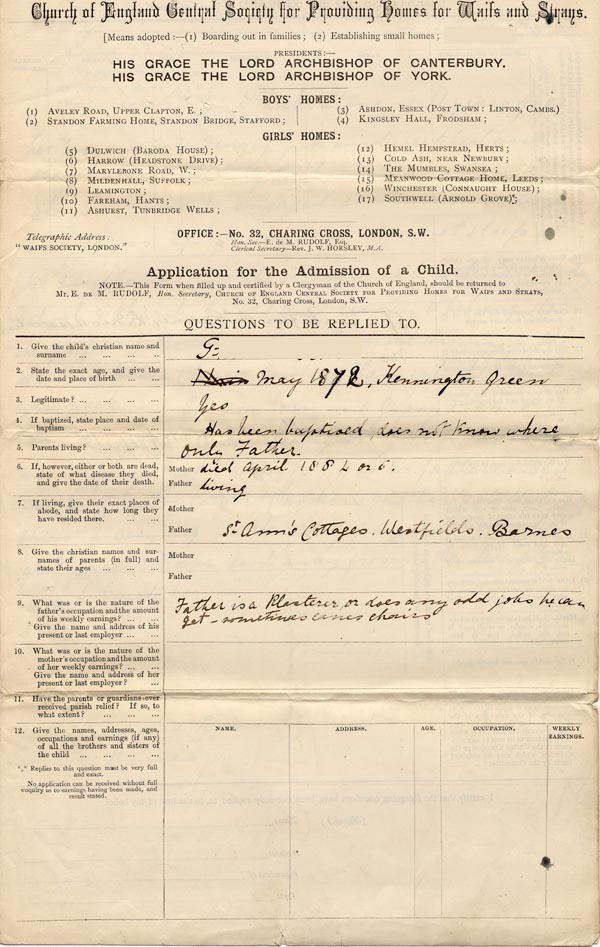 Church of England Central Society for Providing Homes for Waifs and Strays.
[Means adopted :—(1) Boarding out in families; (2) Establishing small homes;
PRESIDENTS:—
HIS GRACE THE LORD ARCHBISHOP OF CANTERBURY.
HIS GRACE THE LORD ARCHBISHOP OF YORK.
BOYS' HOMES:
(1) AVELEY ROAD, UPPER CLAPTON, E. ;
(2) STANDON FARMING HOME, STANDON BRIDGE, STAFFORD ;
(3) ASHDON, ESSEX (POST TOWN : LINTON, CAMBS.)
(4) KINGSLEY HALL, FRODSHAM ;
GIRLS' HOMES:
(5) DULWICH (BARODA HOUSE) ;
(6) HARROW (HEADSTONE DRIVE) ;
(7) MARYLEBONE ROAD, W. ;
(8) MILDENHALL, SUFFOLK ;
(9) LEAMINGTON ;
(10) FAREHAM, HANTS ;
(11) ASHURST, TUNBRIDGE WELLS ;
(12) HEMEL HEMPSTEAD, HERTS ;
(13) COLD ASH, NEAR NEWBURY ;
(14) THE MUMBLES, SWANSEA ;
(15) MEANWOOD COTTAGE HOME, LEEDS ;
(16) WINCHESTER (CONNAUGHT HOUSE) ;
(17) SOUTHWELL (ARNOLD GROVE) ;
Telegraphic Address :
"WAIFS SOCIETY, LONDON."
OFFICE:—No. 32, CHARING CROSS, LONDON, S.W.
Hon. Sec.—E. de M. RUDOLF, Esq.
Clerical Secretary—Rev. J. W. HORSLEY, M.A.
Application for the Admission of a Child.
NOTE.—This Form when filled up and certified by a Clergyman of the Church of England, should be returned to
Mr. E. DE M. RUDOLF, Hon. Secretary, CHURCH OF ENGLAND CENTRAL SOCIETY FOR PROVIDING HOMES FOR WAIFS AND STRAYS,
No. 32, Charing Cross, London, S.W.
QUESTIONS TO BE REPLIED TO.
1. Give the child's christian name and
surname ... ... ... ...
G
2. State the exact age, and give the
date and place of birth ... ...
May 1872, Kennington Green
3. Legitimate ? ... ... ... ...
Yes
4. If baptized, state place and date of
baptism ... ... ... ...
Has been baptised, does not know where
5. Parents living ? ... ... ...
only Father.
6. If, however, either or both are dead,
state of what disease they died,
and give the date of their death.
Mother died April 1884 or 5.
Father living
7. If living, give their exact places of
abode, and state how long they
have resided there. ... ...
Mother
Father St Ann's Cottages. Westfields. Barnes
8. Give the christian names and sur-
names of parents (in full) and
state their ages ... ... ...
Mother
Father
9. What was or is the nature of the
father's occupation and the amount
of his weekly earnings? ... ...
Give the name and address of his
present or last employer ? ...
Father is a Plasterer, or does any odd jobs he can
get - sometimes canes chairs
10. What was or is the nature of the
mother's occupation and the amount
of her weekly earnings? ... ...
Give the name and address of her
present or last employer ? ...
11. Have the parents or guardians ever
received parish relief ? If so, to
what extent ? ... ... ...
12. Give the names, addresses, ages,
occupations and earnings (if any)
of all the brothers and sisters of
the child ... ... ... ...
*** Replies to this question must be very full
and exact.
No application can be received without full
enquiry as to earnings having been made, and
result stated.
NAME. ADDRESS. AGE. OCCUPATION. WEEKLY
EARNINGS.